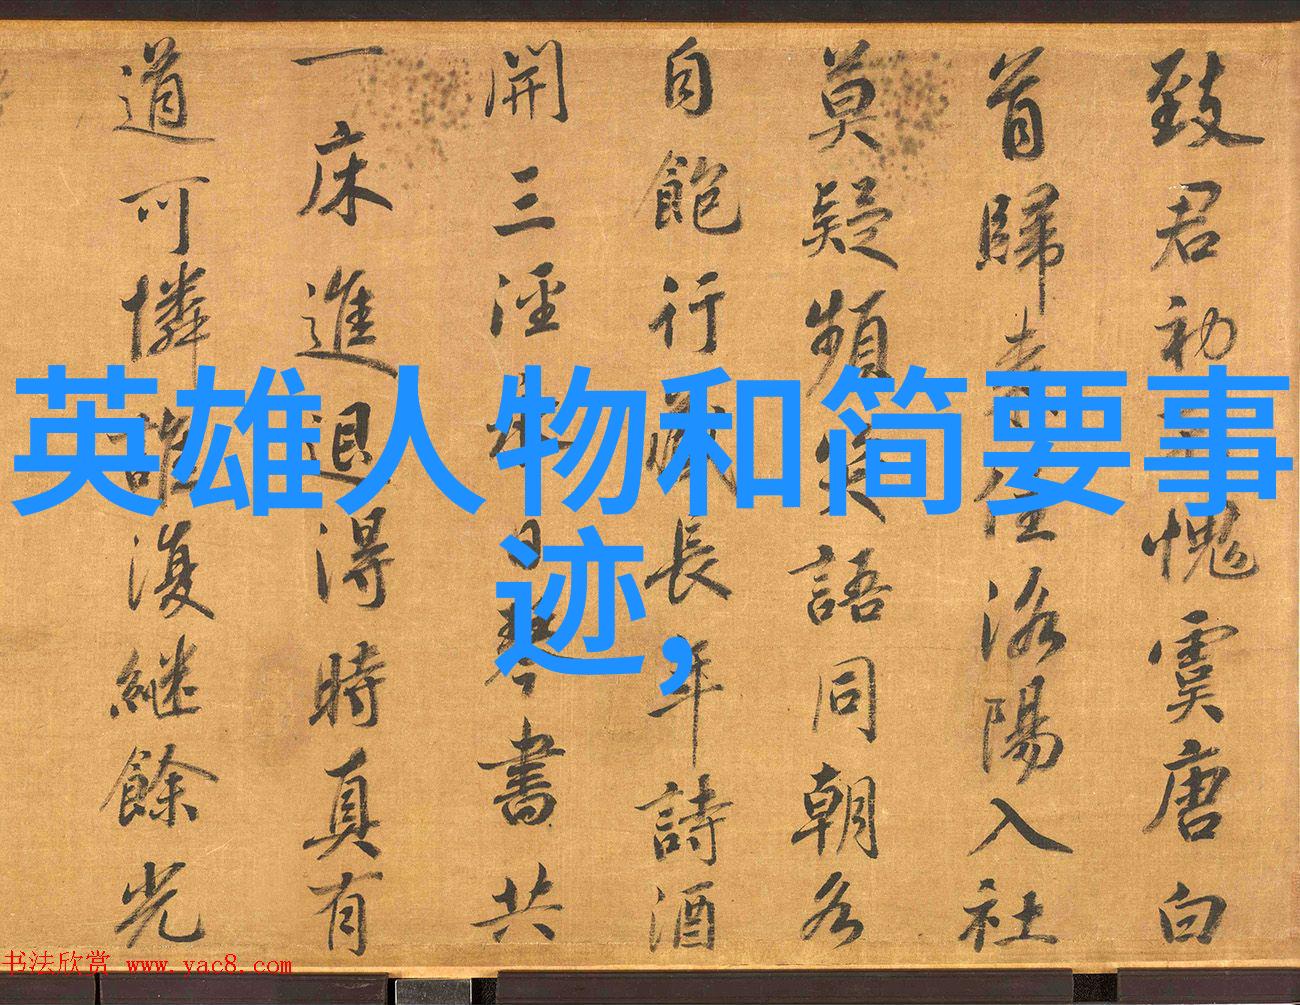 致君初愧虞唐白
首歸洛陽入社
莫疑頻笑語同朝各
自飽行藏長年詩酒
開三逕日琴書共
一床進退得時真有
道可憐誰復繼餘光
英雄人物和简要事
迹，
书法欣赏 www.yac8.com